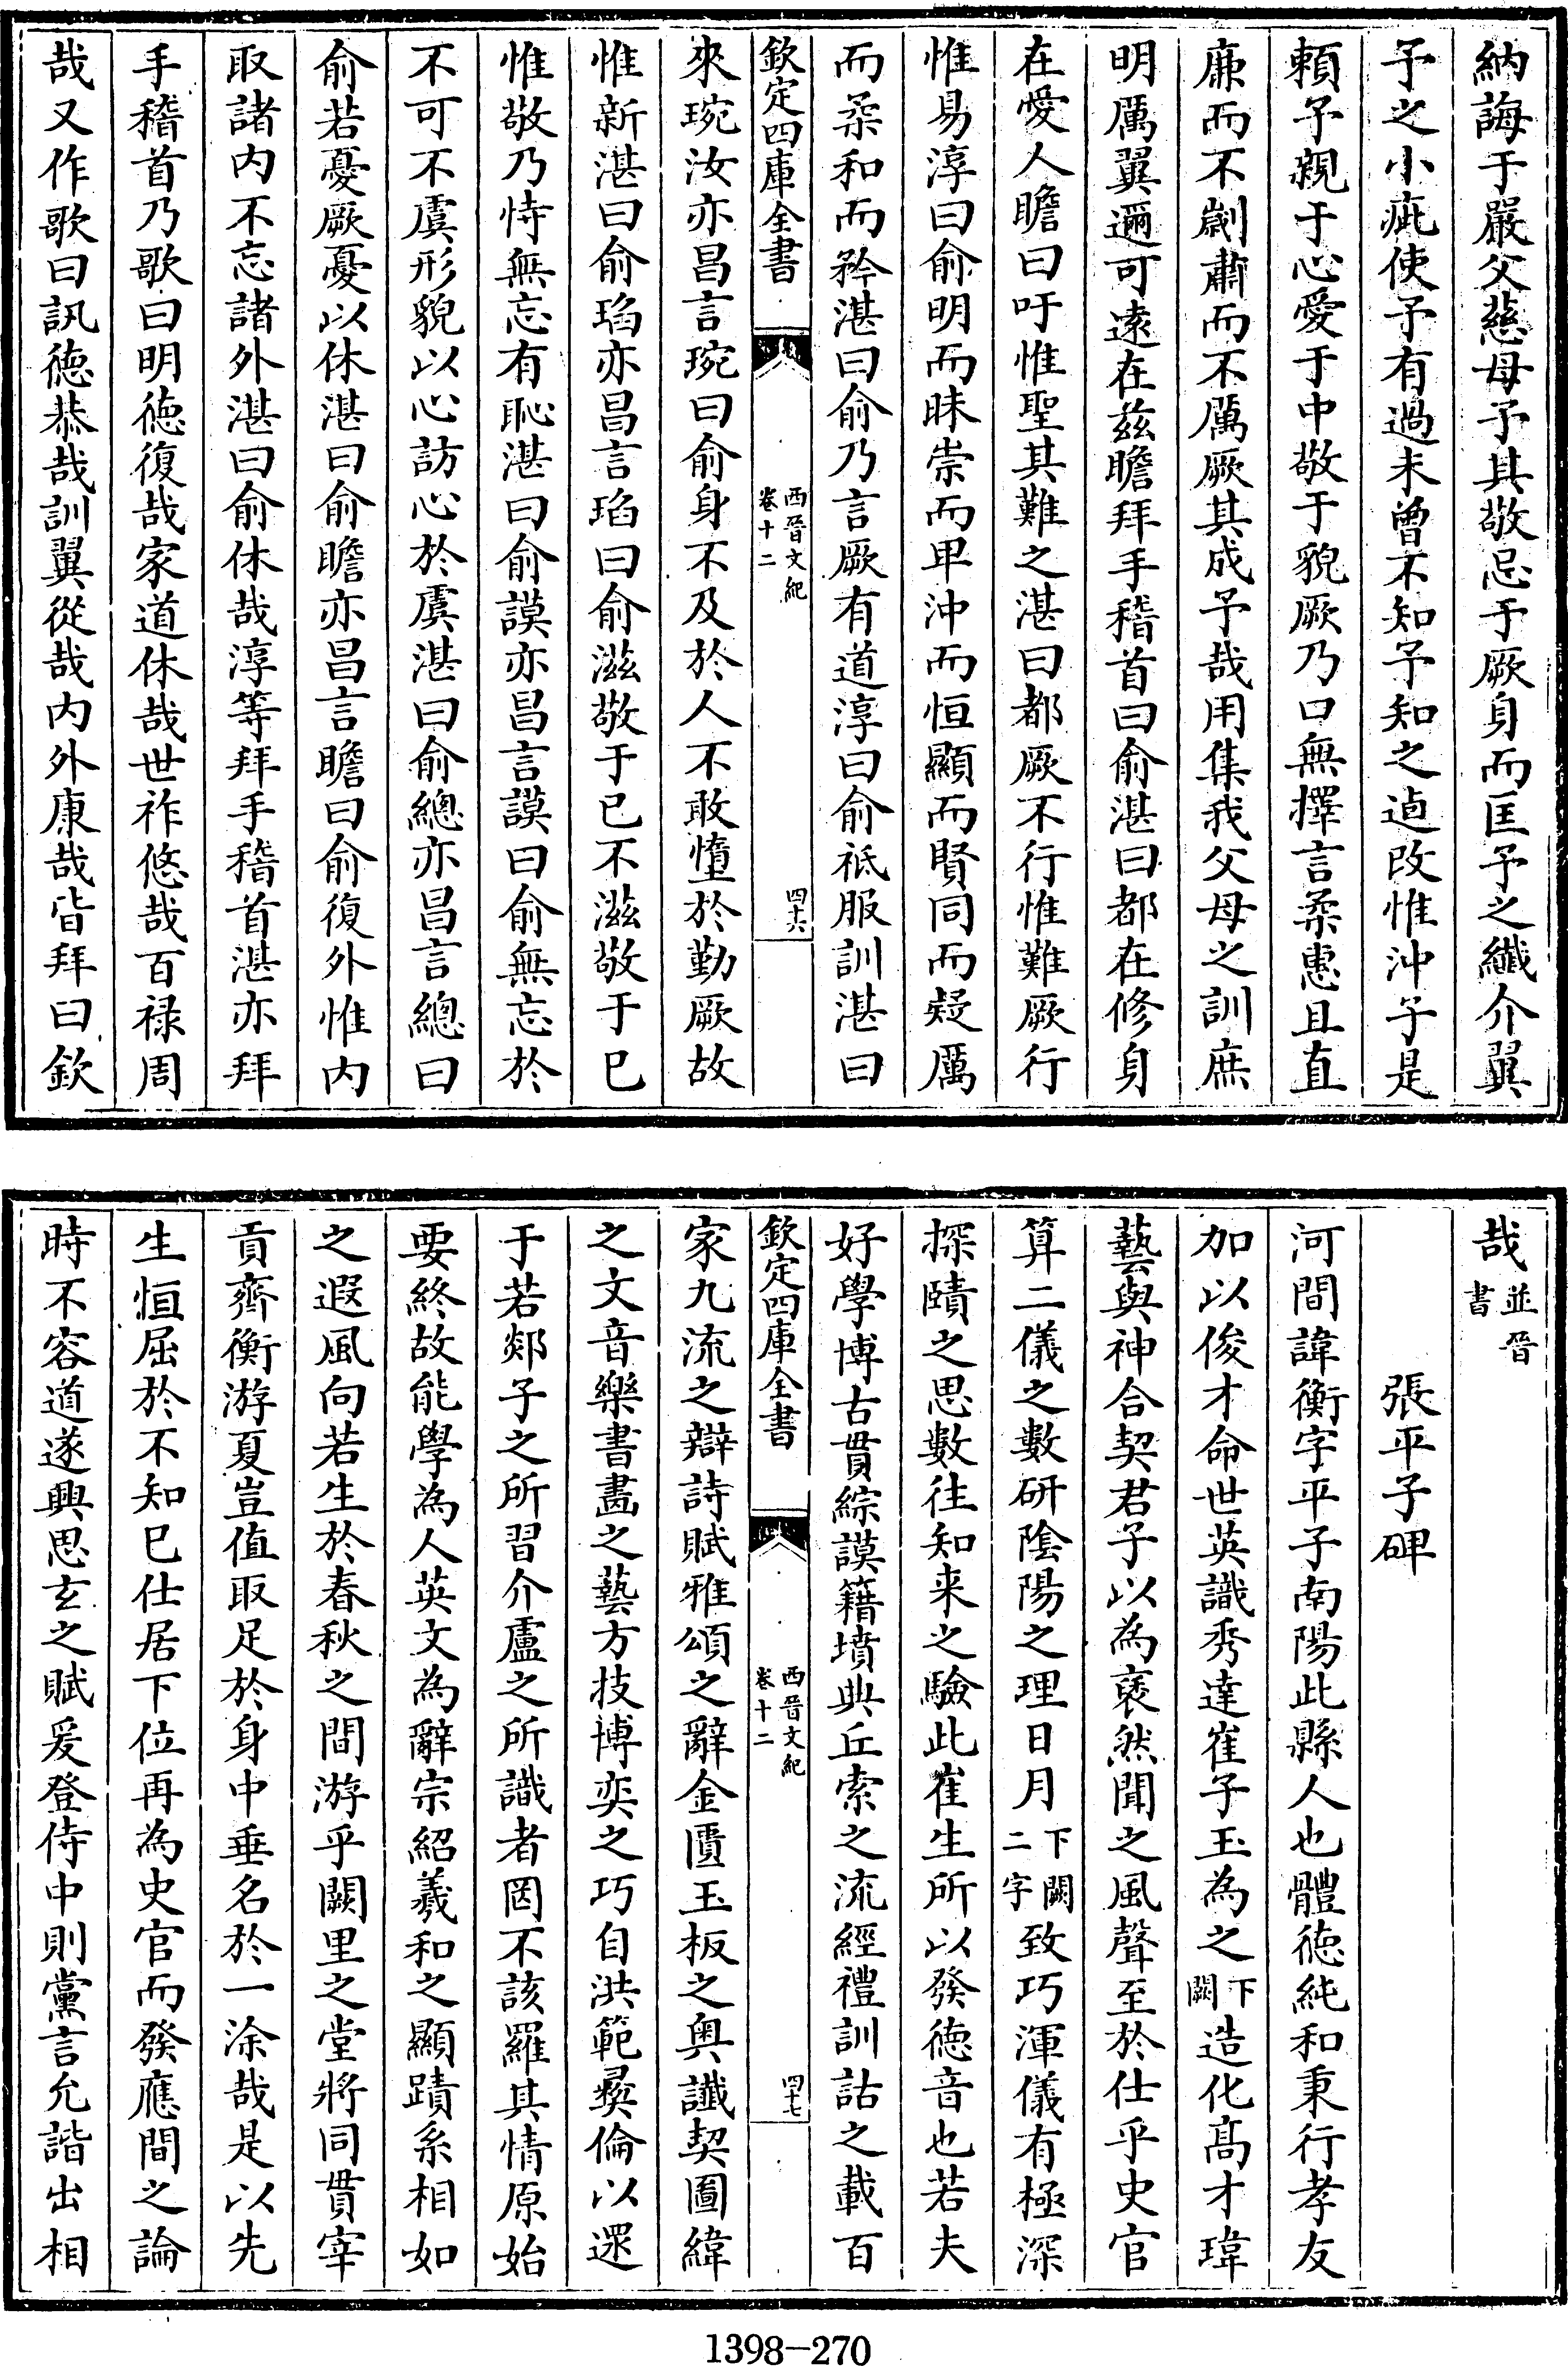 納誨于嚴父慈母予其敬忌于厥身而匡予之纖介翼
予之小疵使予有過未曾不知予知之逌改惟沖子是
賴予親于心愛于中敬于貌厥乃口無擇言柔惠且直
廉而不劌肅而不厲厥其成予哉用集我父母之訓庶
明厲翼邇可逺在兹瞻拜手稽首曰俞湛曰都在修身
在愛人瞻曰吁惟聖其難之湛曰都厥不行惟難厥行
惟易淳曰俞明而昧崇而卑沖而恒顯而賢同而疑厲
而柔和而矜湛曰俞乃言厥有道淳曰俞祗服訓湛曰
欽定四庫全書
西晉文紀
卷十二
四十六
來琬汝亦昌言琬曰俞身不及於人不敢墮於勤厥故
惟新湛曰俞瑫亦昌言瑫曰俞滋敬于已不滋敬于已
惟敬乃恃無忘有恥湛曰俞謨亦昌言謨曰俞無忘於
不可不虞形貌以心訪心於虞湛曰俞總亦昌言總曰
俞若憂厥憂以休湛曰俞瞻亦昌言瞻曰俞復外惟内
取諸内不忘諸外湛曰俞休哉淳等拜手稽首湛亦拜
手稽首乃歌曰明徳復哉家道休哉世祚悠哉百禄周
哉又作歌曰訊徳恭哉訓翼從哉内外康哉皆拜曰欽
哉並晉書
張平子碑
河間諱衡字平子南陽此縣人也體徳純和秉行孝友
加以俊才命世英識秀達崔子玉為之下闕造化髙才瑋
藝與神合契君子以為褒然聞之風聲至於仕乎史官
算二儀之數研陰陽之理日月下闕二字致巧渾儀有極深
探賾之思數往知来之驗此崔生所以發徳音也若夫
好學博古貫綜謨籍墳典丘索之流經禮訓詁之載百
欽定四庫全書
西晉文紀
卷十二
四十七
家九流之辯詩賦雅頌之辭金匱玉板之奥讖契圖緯
之文音樂書畫之藝方技博奕之巧自洪範彛倫以還
于若郯子之所習介盧之所識者罔不該羅其情原始
要終故能學為人英文為辭宗紹羲和之顯蹟系相如
之遐風向若生於春秋之間游乎闕里之堂將同貫宰
貢齊衡游夏豈值取足於身中垂名於一涂哉是以先
生恒屈於不知巳仕居下位再為史官而發應間之論
時不容道遂興思玄之賦爰登侍中則黨言允諧出相
1398-270